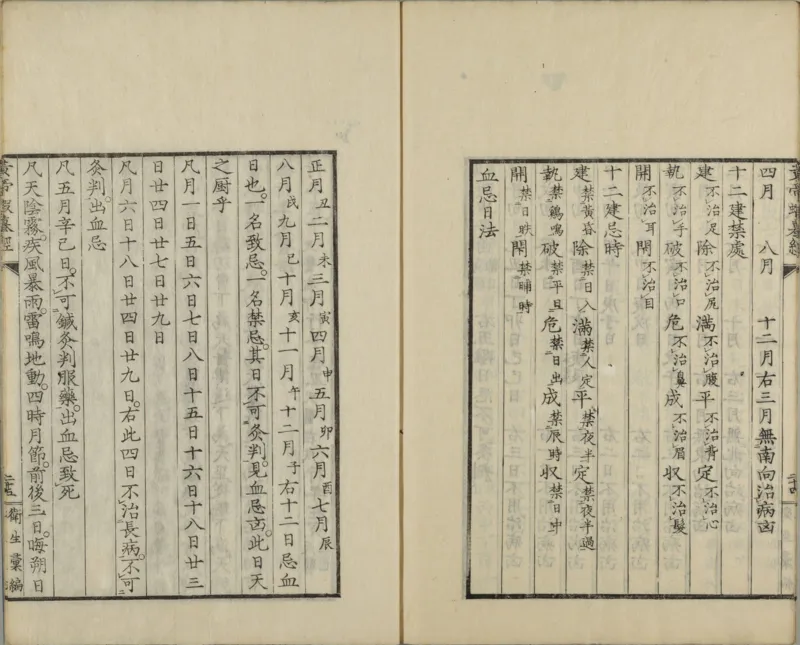 四月　八月　十二月右三月無南向治病凶
十二建禁處
建不治足除不治尻滿不治腹平不治背定不治心
執不治手破不治口危不治鼻成不治眉収不治髮
開不治耳閇不治目
十二建忌時
建禁黄昏除禁日入滿禁人定平禁夜半定禁夜半過
執禁鷄鳴破禁平旦危禁日出成禁辰時収禁日中
開禁日昳閇禁晡時
血忌日法
正月丑二月未三月寅四月申五月卯六月酉七月辰
八月戌九月巳十月亥十一月午十二月子右十二日忌血
日也。一名致忌。一名禁忌。其日不可灸判。見血忌凶。此日天
之厨乎
凡月一日五日六日七日八日十五日十六日十八日廿三
日廿四日廿七日廿九日
凡月六日十八日廿四日廿九日。右此四日不治長病。不可
灸判。出血忌
凡五月辛巳日。不可鍼灸判服藥。出血忌致死
凡天陰霧。疾風暴雨。雷鳴地動。四時月節。前後三日。晦朔日
黄帝蝦蟇經
衛生彙編